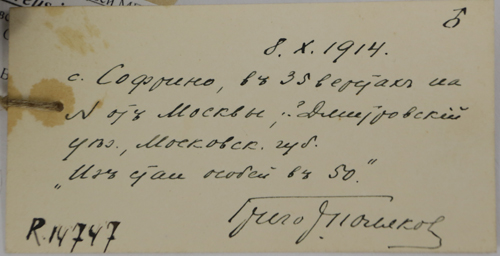 ♂
8. X. 1914.
с. Софрино, въ 35 верстахъ на
N отъ Москвы, ? Дмитровскій
уѣз., Московск. губ.
"Изъ стаи особей въ 50."
Григо
R. 14747